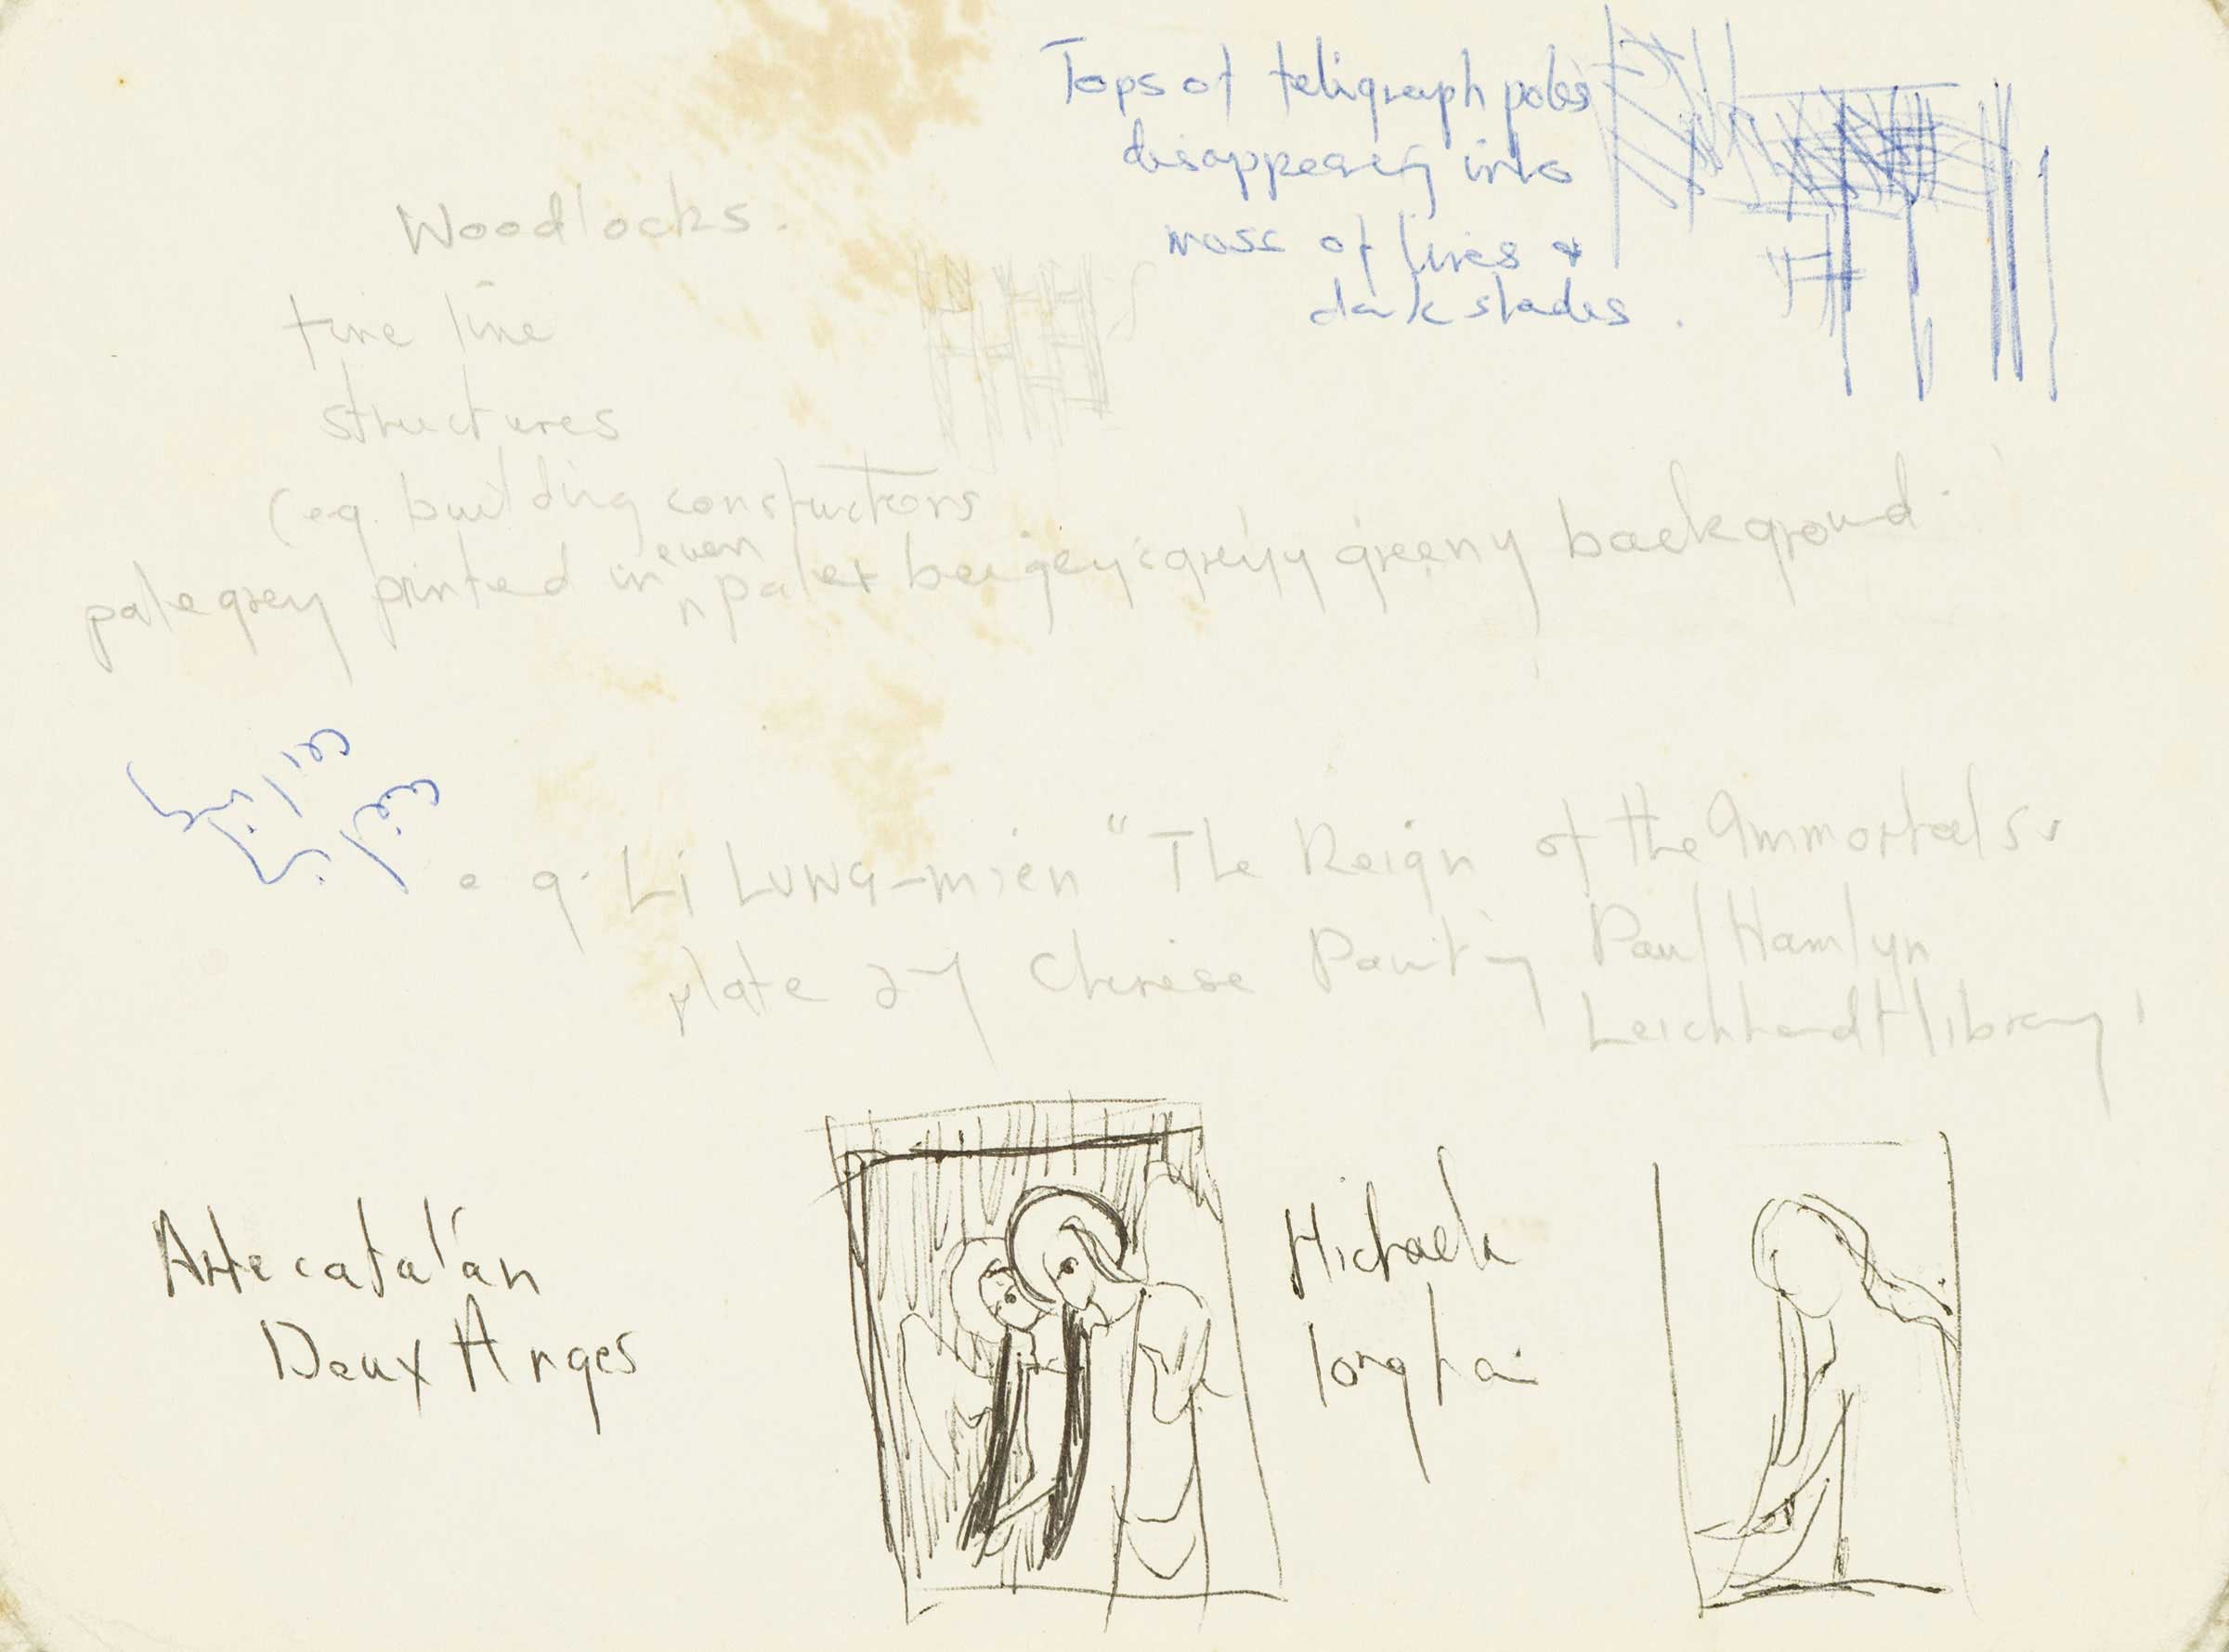 Tops of teligraph poles
disappearing into
mass of lines &
dark shades.
Woodlocks.
fine line
structures
(eg. building constructions
pale grey printed in even paler beigey greyy greeny background.
e.g. Li Lung-mien "The Reign of the Immortals"
plate 27 Chinese Painting Paul Hamlyn
Leichhardt library
Arte catalán
Deux Anges